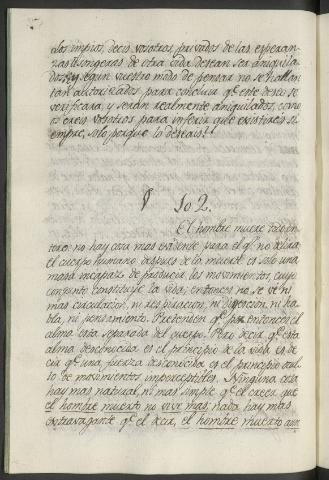 Los impios, decis vosotros, privados de las esperan-
zas lisongeras de otra vida desean ser aniquila-
dos; y según vuestro modo de pensar no se hallan
tan autorizados para concluir qe este deseo se
verificara, y serán realmente aniquilados, como
os creeis vosotros para inferir que existireis si-
empre, solo porque lo deseais!!
§ 102.
El hombre muere todo en-
tero: no hay cosa mas evidente para el qe no delira.
el cuerpo humano despues de la muerte es solo una
masa incapaz de producir los movimientos, cuyo
conjunto constituye la vida; entonces no se ve ni
mas circulacion, ni respiracion, ni digestion, ni ha-
bla, ni pensamiento. Pretenden qe entonces el
alma esta separada del cuerpo. Pero decir qe esta
alma desconocida es el principio de la vida es de-
cir qe una fuerza desconocida es el principio ocul-
to de movimientos imperceptibles. Ninguna cosa
hay mas natural, ni mas simple qe el creer que
el hombre muerto no vive mas; nada hay mas
extravagante qe el decir, el hombre muerto aun